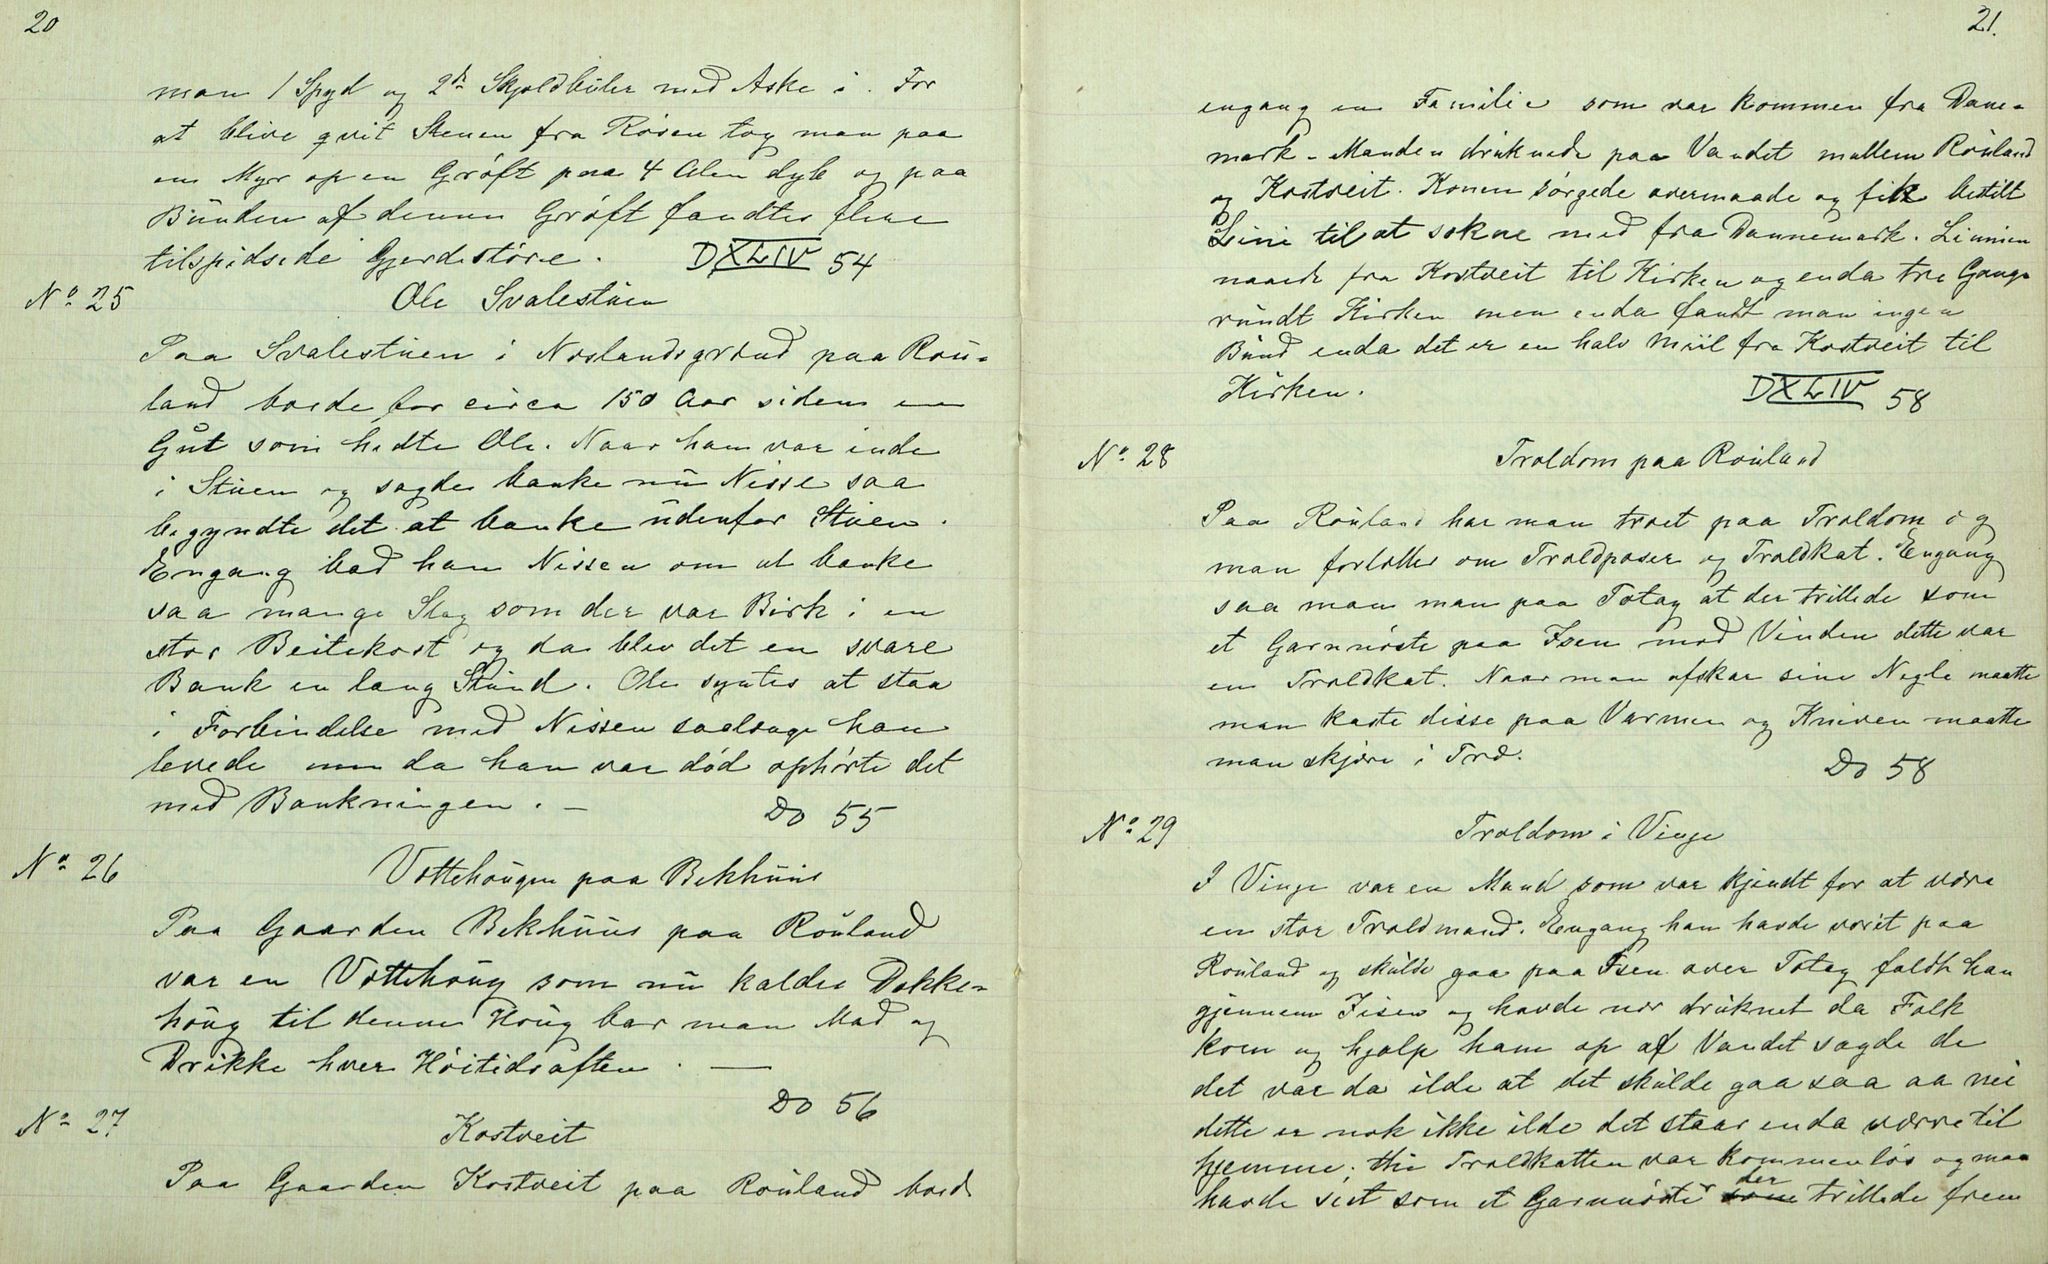 20
man 1 Spyd og 2de Skjoldbuler med Aske i. For
at blive qvit Stenen fra Røisen tog man paa
en Myr op en Grøft paa 4 Alen dyb og paa
Bunden af denne Grøft fandtes flere
tilspidsede Gjerdestøre. DXLIV 54
No 25 Ole Svalestuen
Paa Svalestuen i Neslandsgrænd paa Rou-
land boede for circa 150 Aar siden en
Gut som hedte Ole. Naar han var inde
i Stuen og sagde banke nu Nisse saa
begyndte det at banke udenfor Stuen.
Engang bad han Nissen om at banke
saa mange Slag som der var Birk i en
stor Beitekost og da blev det en svare
Bank en lang Stund. Ole syntes at staa
i Forbindelse med Nissen saalænge han
levede men da han var død ophørte det
med Bankningen. — Do 55
No 26 Vettehougen paa Bekhuus
Paa Gaarden Bekhuus paa Rouland
var en Vettehoug som nu kaldes Dekke-
houg til denne Houg bar man Mad og
Drikke hver Høitidsaften. —
Do 56
No 27 Kostveit
Paa Gaarden Kostveit paa Rouland boede
21.
engang en Familie som var kommen fra Dane-
mark. Manden druknede paa Vandet mellem Rouland
og Kostveit. Konen sørgede overmaade og fik bestilt
Line til at sokne med fra Dannemark. Linnien
naaede fra Kostveit til Kirken og enda tre Gange
rundt Kirken men enda fandt man ingen
Bund enda det er en halv Miil fra Kostveit til
Kirken. DXLIV 58
No 28 Troldom paa Rouland
Paa Rouland har man troet paa Troldom og
man fortæller om Troldposer og Troldkat. Engang
saa man man paa Totag at der trillede som
et Garnnøste paa Isen mod Vinden dette var
en Troldkat. Naar man afskar sine Negle maatte
man kaste disse paa Varmen og Kniven maatte
man skjære i Træ. Do 58
No 29 Troldom i Vinje
I Vinje var en Mand som var kjendt for at være
en stor Troldmand. Engang han havde været paa
Rouland og skulde gaa paa Isen over Totag faldt han
gjennem Iisen og havde nær druknet da Folk
kom og hjalp ham op af Vandet sagde de
det var da ilde at det skulde gaa saa aa nei
dette er nok ikke ilde det staar enda værre til
hjemme. thi Troldkatten var kommen løs og man
havde seet som et Garnnøste der trillede frem